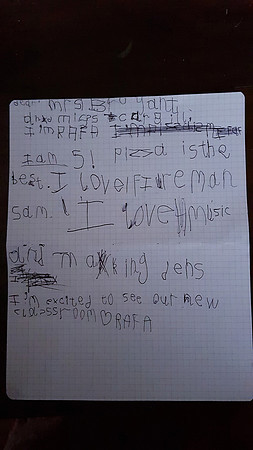 dear mrs Bruyant
and miss cargill
I'm RAFA
I am 5! pizza is the
best. I love fireman
sam. ! I love music
and making dens
I'm excited to see our new
classroom ♡ RAFA